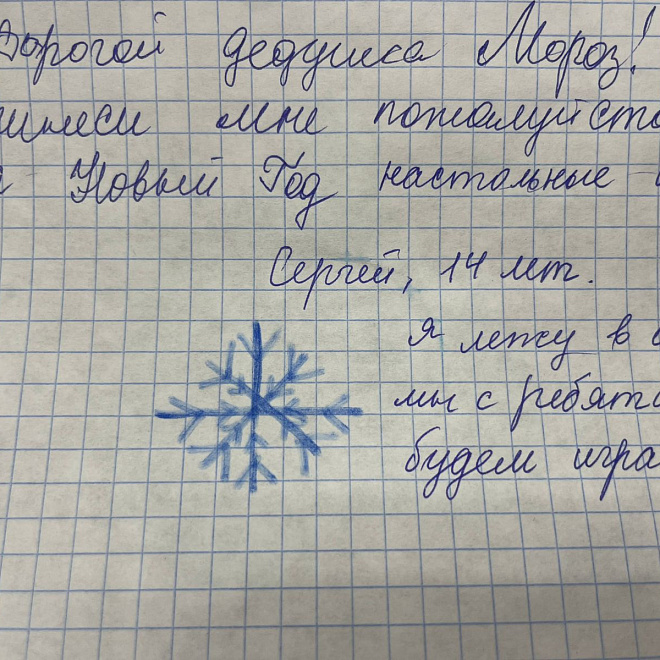 Дорогой дедушка Мороз!
мне пожалуйста
Новый Год настольные
Сергей, 14 лет.
я лежу в
мы с ребята
будем игра